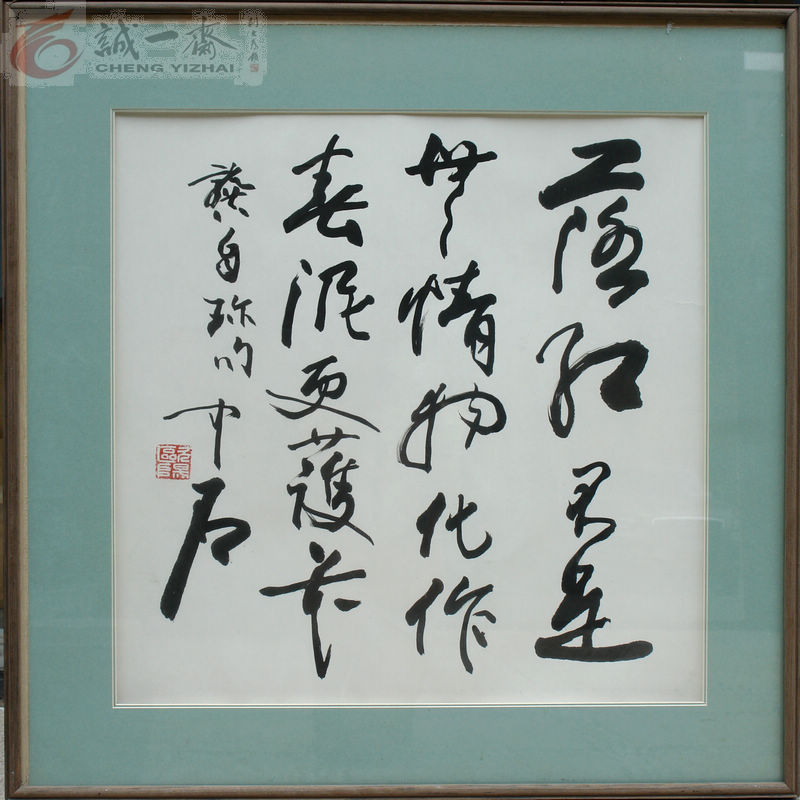 誠一齋
CHENG YIZHAI
落紅是
無情物化作
春泥更護花
龔自珍句 中石